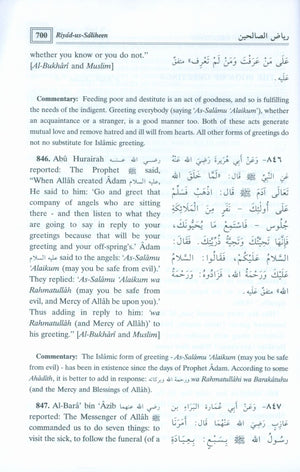 700 Riyâd-us-Sâliheen رياض الصالحين
whether you know or you do not."
[Al-Bukhârî and Muslim]
عَلَى مَنْ عَرَفْتَ وَمَنْ لَمْ تَعْرِفْ» متفقٌ
عليه.
Commentary: Feeding poor and destitute is an act of goodness, and so is fulfilling
the needs of the indigent. Greeting everybody (saying 'As-Salâmu 'Alaikum'), whether
an acquaintance or a stranger, is a good manner too. Both of these acts generate
mutual love and remove hatred and ill will from hearts. All other forms of greetings do
not so substitute for Islamic greeting.
846. Abû Hurairah رضي الله عنه
reported: The Prophet ﷺ said,
"When Allâh created Âdam عليه السلام,
He said to him: 'Go and greet that
company of angels who are sitting
there - and then listen to what they
are going to say in reply to your
greetings because that will be your
greeting and your off-spring's.' Âdam
عليه السلام said to the angels: 'As-Salâmu
'Alaikum (may you be safe from evil).'
They replied: 'As-Salâmu 'Alaikum wa
Rahmatullâh (may you be safe from
evil, and Mercy of Allâh be upon you).'
Thus adding in reply to him: 'wa
Rahmatullâh (and Mercy of Allâh)' to
his greeting." [Al-Bukhârî and Muslim]
٨٤٦- وَعَنْ أَبِي هُرَيْرَةَ رَضِيَ اللهُ عَنْهُ
عَنِ النَّبِيِّ ﷺ قال: «لَمَّا خَلَقَ اللهُ
تَعَالَى آدَمَ ﷺ قال: اذْهَبْ فَسَلِّمْ
عَلَى أُولئِكَ - نَفَرٍ مِنَ الْمَلَائِكَةِ
جُلُوسٍ - فَاسْتَمِعْ مَا يُحَيُّونَكَ،
فَإِنَّهَا تَحِيَّتُكَ وَتَحِيَّةُ ذُرِّيَّتِكَ. فَقَالَ:
السَّلَامُ عَلَيْكُمْ، فَقَالُوا: السَّلَامُ
عَلَيْكَ وَرَحْمَةُ اللهِ، فَزَادُوهُ: وَرَحْمَةُ
اللهِ» متفقٌ عليه.
Commentary: The Islamic form of greeting - As-Salâmu Alaikum (may you be safe
from evil) - has been in existence since the days of Prophet Âdam. According to some
Ahâdîth, it is better to add in response: ورحمة الله وبركاته wa Rahmatullâhi wa Barakâtuhu
(and the Mercy and Blessings of Allâh).
847. Al-Bara' bin 'Azib رضي الله عنهما
reported: The Messenger of Allâh ﷺ
commanded us to do seven things: to
visit the sick, to follow the funeral (of a
٨٤٧- وَعَنْ أَبِي عُمَارَةَ الْبَرَاءِ بْنِ
عَازِبٍ رَضِيَ اللهُ عَنْهُمَا قال: أَمَرَنَا
رَسُولُ اللهِ ﷺ بِسَبْعٍ: بِعِيَادَةِ